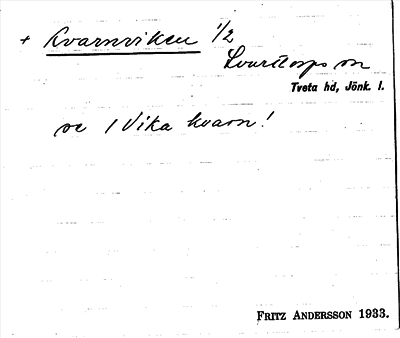 + Kvarnviken 1/2
Svarttorps sn
Tveta hd, Jönk. l.
se Vika kvarn!
FRITZ ANDERSSON 1933.